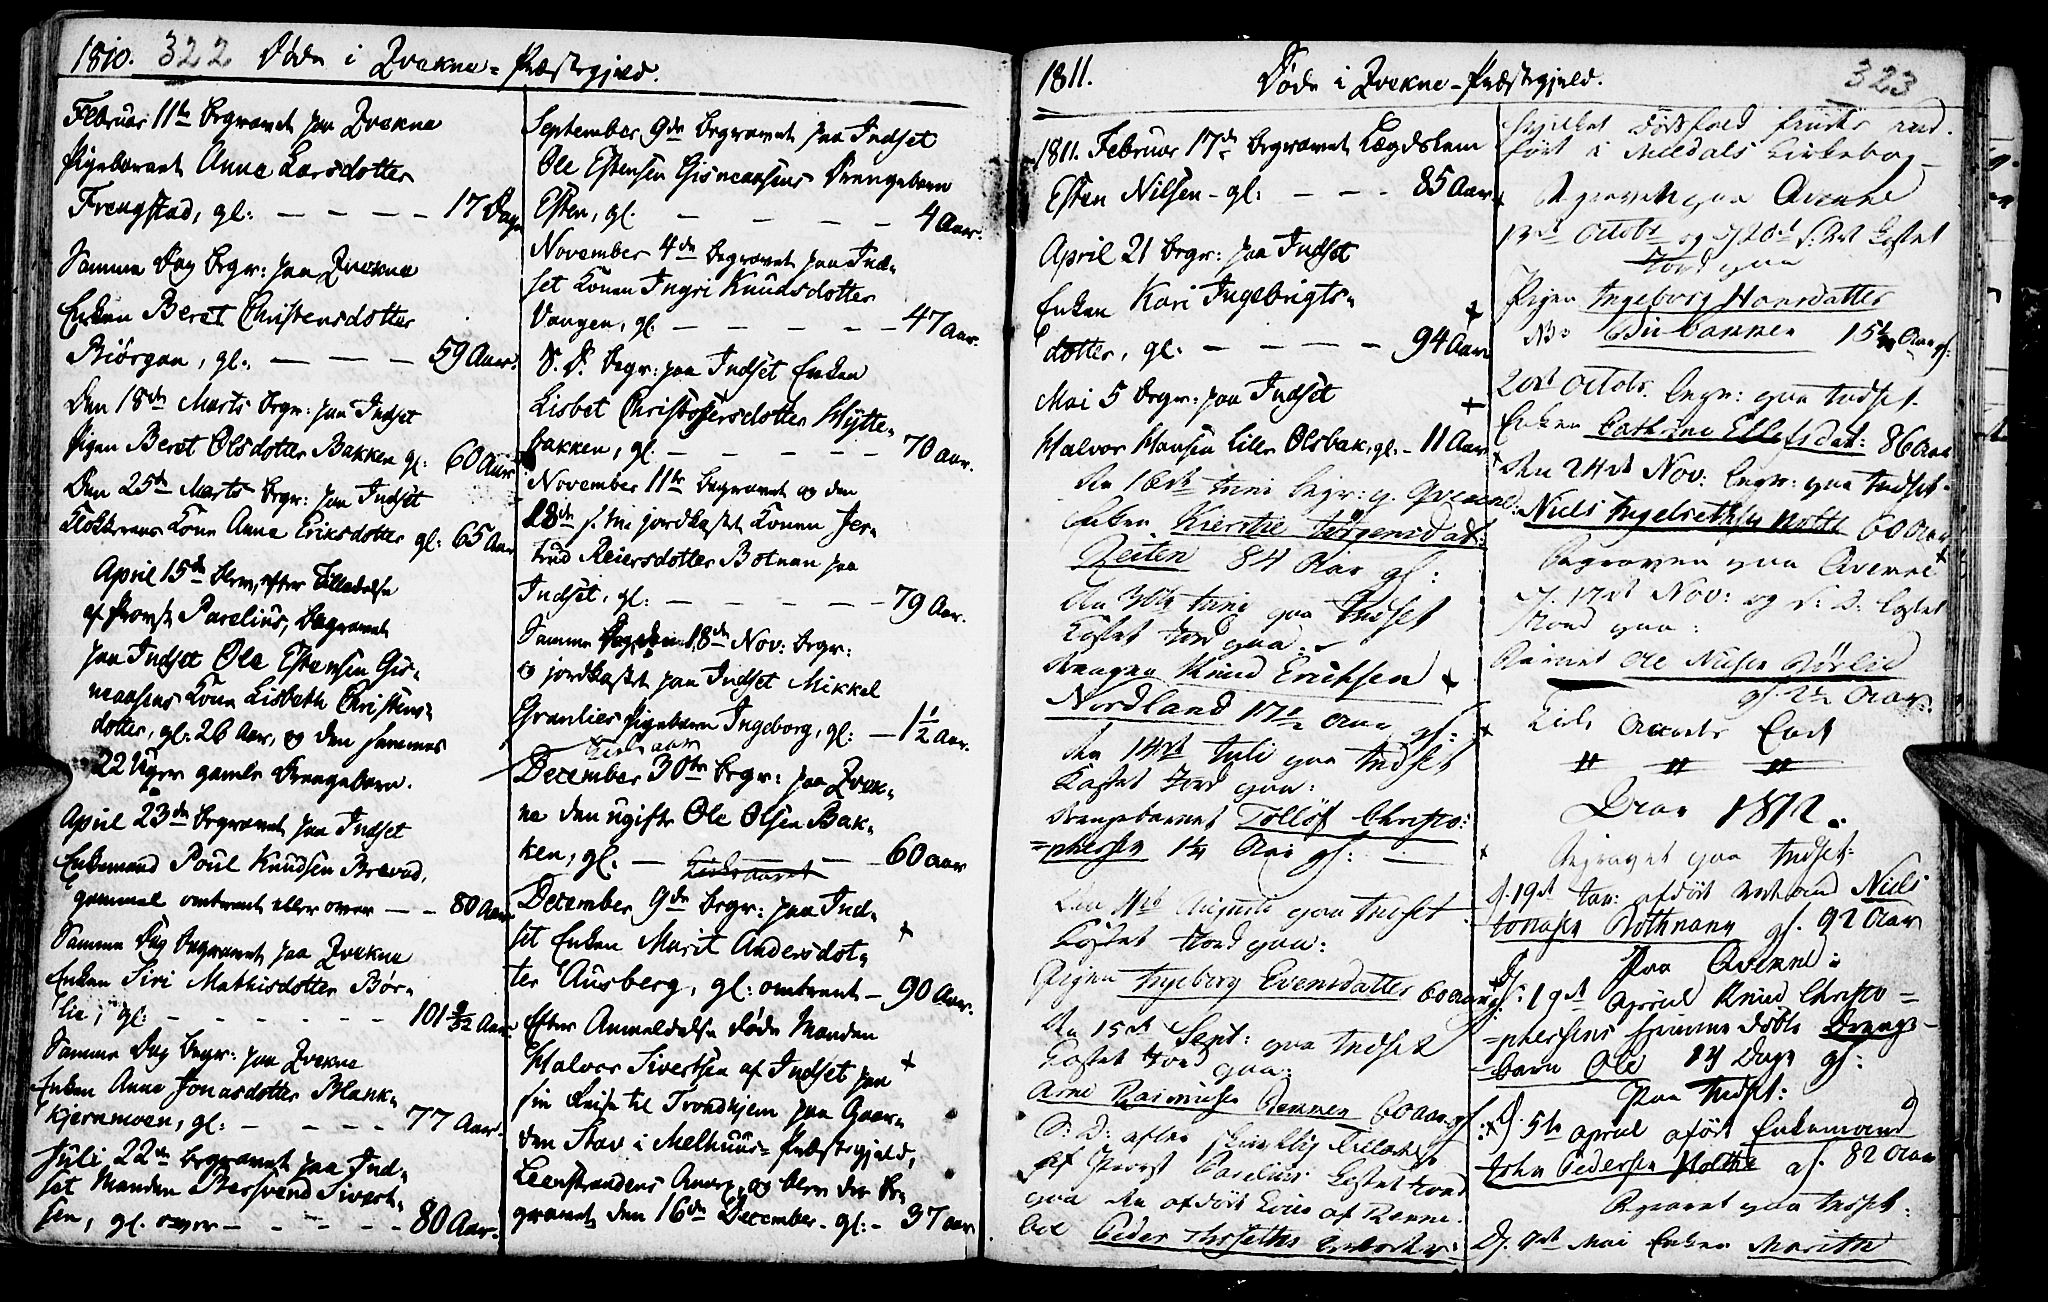 1810. 322 Døde i Qvekne-Præstegield.
Februar 11te begravet paa Qvekne
Pigebarnet Anne Larsdotter
Frengstad, gl: — — — — 17 Dage
Samme Dag begr: paa Qvekne
Enken Beret Christensdotter
Biørgan, gl: — — — 59 Aar.
Den 18de Marts begr: paa Indset
Pigen Beret Olsdotter Bakken gl: 60 Aar
Den 25de Marts begr: paa Indset
Klokkerens Kone Anne Eriksdotter gl: 65 Aar
April 15de blev, efter Tilladelse
af Provst Parelius, begravet
paa Indset Ole Estensen Gis-
neaasens Kone Lisbeth Christens-
dotter, gl: 26 Aar, og den sammes
22 Uger gamle Drengebarn.
April 23de begravet paa Indset
Enkemand Poul Knudsen Brevad,
gammel omtrent eller over — — 80 Aar
Samme Dag begravet paa Qvekne
Enken Siri Mathisdotter Bør-
lie, gl: — — — — — — 101 Aar.
Samme Dag begr: paa Qvekne
Enken Anne Jonasdotter Blank-
kjernmoen, gl: — — — — 77 Aar.
Juli 22de begravet paa Ind-
set Manden Bersvend Sivert-
sen, gl. over — — — — 80 Aar.
September 9de begravet paa Indset
Ole Estensen Gisneaasens Drengebarn
Esten, gl. — — — — 4 Aar.
November 4de begravet paa Ind-
set Konen Ingri Knudsdotter
Vangen, gl. — — — — — 47 Aar.
S. D. begr: paa Indset Enken
Lisbet Christophersdotter Hytte-
bakken, gl. — — — — — 70 Aar.
November 11te begravet og den
18de s. M. jordkastet Konen Jer-
trud Reiersdotter Botnan paa
Indset, gl: — — — — — 79 Aar.
Samme 18de Nov: begr:
og jordkastet paa Indset Mikkel
Granlies Pigebarn Ingeborg, gl: — 1½ Aar.
Kirkeaar
December 30te begr: paa Qvek-
ne den ugifte Ole Olsen Bak-
ken, gl. — — — 60 Aar
Kirkeaaret
December 9de begr: paa Ind-
set Enken Marit Andersdot-
ter Ausberg, gl: omtrent — 90 Aar.
Efter Anmeldelse døde Manden
Halvor Sivertsen af Indset paa
sin Reise til Trondhjem paa Gaar-
den Stav i Melhuus-Præstegjeld,
Leerstrandens Annex, og blev der be-
gravet den 16de December. gl: - 37 Aar
1811. Døde i Qvekne-Præstegjeld. 323
1811. Februar 17de begravet Lægdslem
Esten Nilsen - gl: — — — 85 Aar
April 21 begr: paa Indset
Enken Kari Ingebrigts-
dotter, gl: — — — — 94 Aar
Mai 5 begr: paa Indset
Halvor Hansen Lille Olsbak, gl. - 11 Aar
den 16de Juni begr: p. Qvekne
Enken Kierstie Jørgensdat:
Zeiten 84 Aar gl:
den 30te Juni paa Indset
Kastet Jord paa:
Drengen Knud Erichsen
Nordland 17½ Aar gl:
den 14de Juli paa Indset
Kastet Jord paa:
Drengebarnet Tolløf Christo:
=phersen 1¼ Aar gl: —
Den 11te Augusti paa Indset
Kastet Jord paa:
Pigen Ingeborg Evensdatter 60 Aar gl:
den 15de Sept: paa Indset
Kastet Jord paa:
Arne Rasmusen Rennen 60 Aar gl
S: D: efter skriftlig Tilladelse
af Provst Parelius Kastet Jord
paa den afdøde
Peder
hvilket Dødsfald findes ind-
ført i Meldals Kirkebog —
Begravet paa Qvekne
13de Octobr. og d. 20de s: M: Kastet
Jord paa
Pigen Ingeborg Hansdatter
15½ Aar gl:
20de Octobr. begr: paa Indset
Enken Cathrine Ellefsdat: 86 Aar
Den 24de Nov: begr: paa Indset
Niels Ingebrethsen Holthe 60 Aar
Begraven paa Qvekne
d. 17de Nov: og S: D: Kastet
Jord paa:
Barnet Ole Nilsen Børlie
gl. 2½ Aar.
Kirke Aarets Ende
Aar 1812.
Begravet paa Indset
d. 19de Jan: afdøde Niels
Jonasen Rothmann gl. 92 Aar
Paa Qvekne:
d: 19de April Knud Christo=
=phersens hjemme døbte Drenge-
barn Ole 14 Dage gl:
Paa Indset:
d. 5te April afdøde Enkemand
John Pedersen Holthe gl. 82 Aar
Begravet paa Indset:
D. 9de Mai Enken Marithe